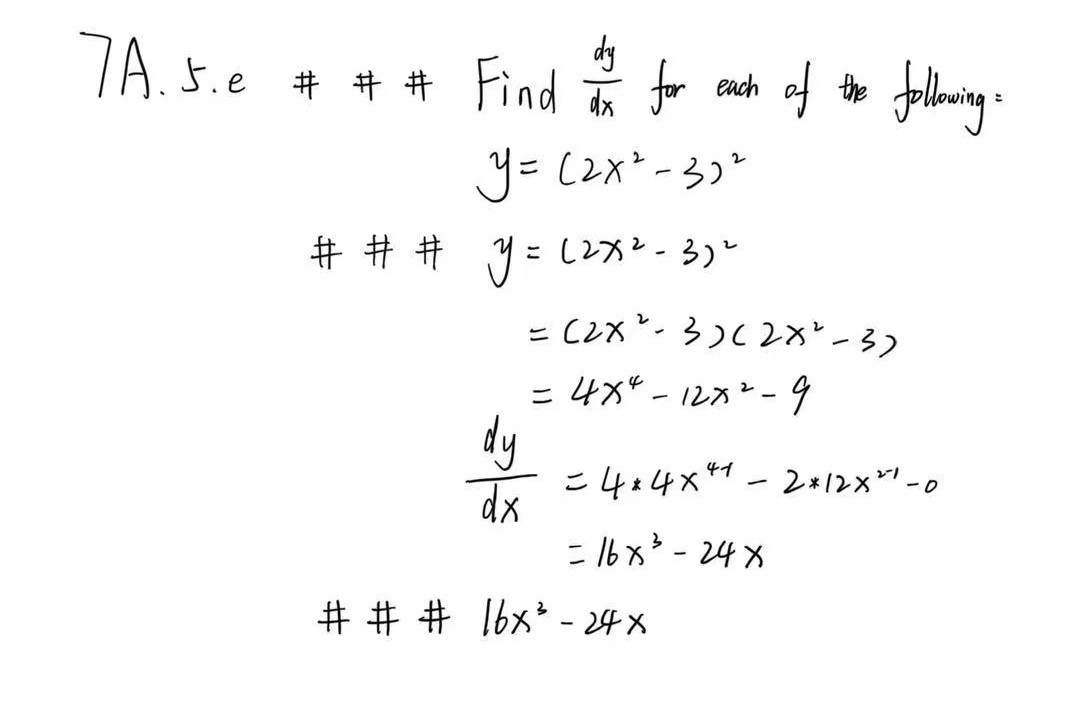 7A.5.e # # # Find dy/dx for each of the following:
y = (2x² - 3)²
# # # y = (2x² - 3)²
= (2x² - 3)(2x² - 3)
= 4x⁴ - 12x² - 9
dy/dx = 4*4x⁴⁻¹ - 2*12x²⁻¹ - 0
= 16x³ - 24x
# # # 16x³ - 24x